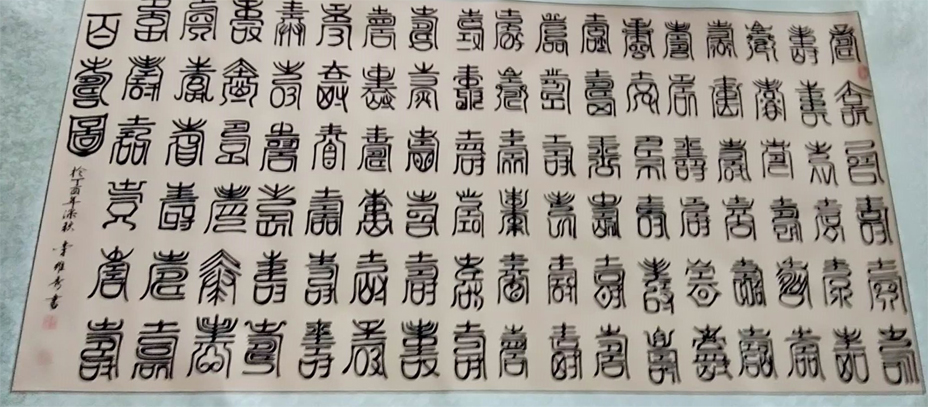 壽壽壽壽壽壽
壽壽壽壽壽壽
壽壽壽壽壽壽
壽壽壽壽壽壽
壽壽壽壽壽壽
壽壽壽壽壽壽
壽壽壽壽壽壽
壽壽壽壽壽壽
壽壽壽壽壽壽
壽壽壽壽壽壽
壽壽壽壽壽壽
壽壽壽壽壽壽
壽壽壽壽壽壽
壽壽壽壽壽壽
壽壽壽壽壽壽
壽壽壽壽壽壽
壽壽壽壽壽壽
百壽圖
於丁酉年深秋 李 秀 書